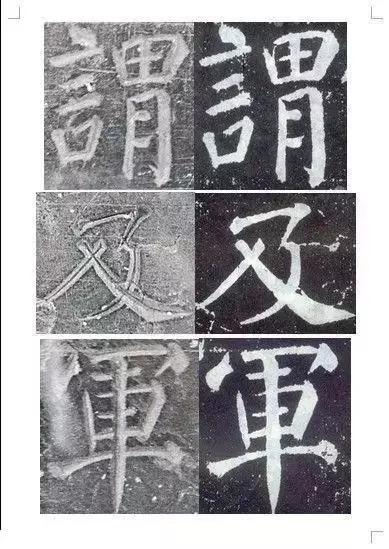 謂 謂
及 及
軍 軍